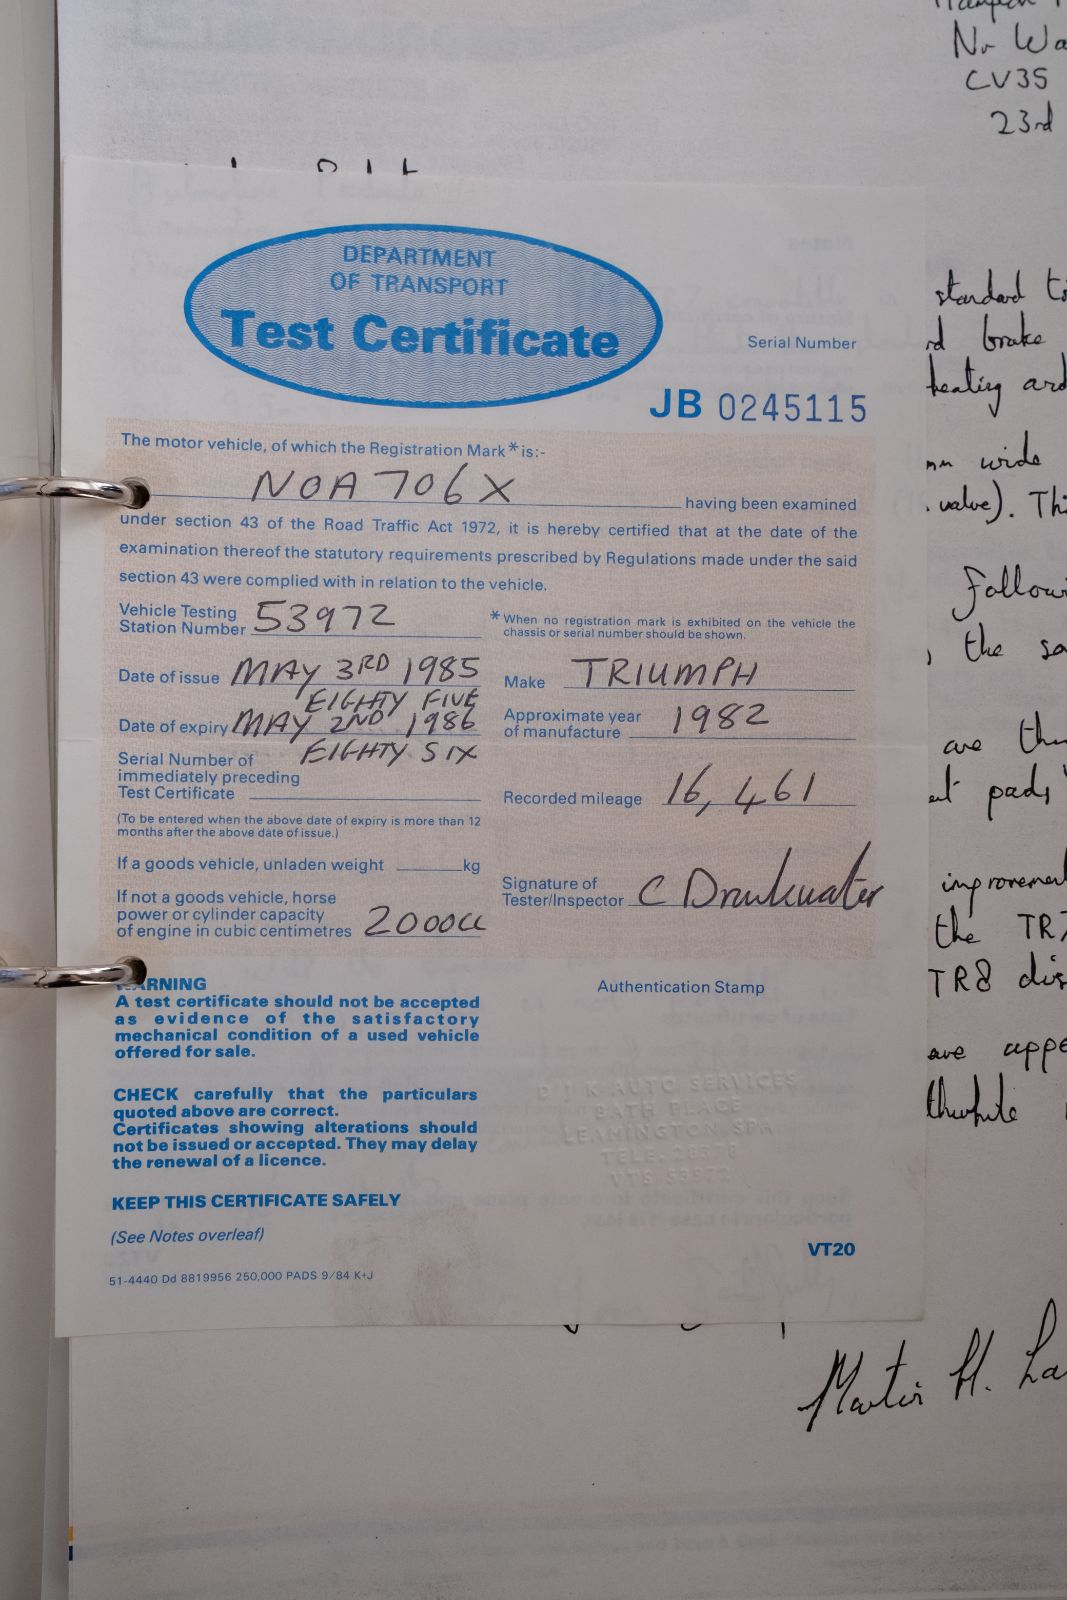 No Wa
CV35
23rd
DEPARTMENT
OF TRANSPORT
Test Certificate
Serial Number
JB 0245115
The motor vehicle, of which the Registration Mark * is:-
NOA 706X having been examined
under section 43 of the Road Traffic Act 1972, it is hereby certified that at the date of the
examination thereof the statutory requirements prescribed by Regulations made under the said
section 43 were complied with in relation to the vehicle.
Vehicle Testing
Station Number 53972
* When no registration mark is exhibited on the vehicle the
chassis or serial number should be shown.
Date of issue MAY 3RD 1985
EIGHTY FIVE
Date of expiry MAY 2ND 1986
EIGHTY SIX
Serial Number of
immediately preceding
Test Certificate
(To be entered when the above date of expiry is more than 12
months after the above date of issue.)
If a goods vehicle, unladen weight kg
If not a goods vehicle, horse
power or cylinder capacity
of engine in cubic centimetres 2000cc
Make TRIUMPH
Approximate year
of manufacture 1982
Recorded mileage 16,461
Signature of
Tester/Inspector C Drinkwater
WARNING
A test certificate should not be accepted
as evidence of the satisfactory
mechanical condition of a used vehicle
offered for sale.
CHECK carefully that the particulars
quoted above are correct.
Certificates showing alterations should
not be issued or accepted. They may delay
the renewal of a licence.
KEEP THIS CERTIFICATE SAFELY
(See Notes overleaf)
51-4440 Dd 8819956 250,000 PADS 9/84 K+J
Authentication Stamp
D J K AUTO SERVICES
BATH PLACE
LEAMINGTON SPA
TELE.
VTS 53972
VT20
standard
rd brake
heating and
mm wide
valve). Thi
Followi
, the sa
are the
pads
improvement
the TR7
TR8 dis
are appe
thwhile
Martin H. La